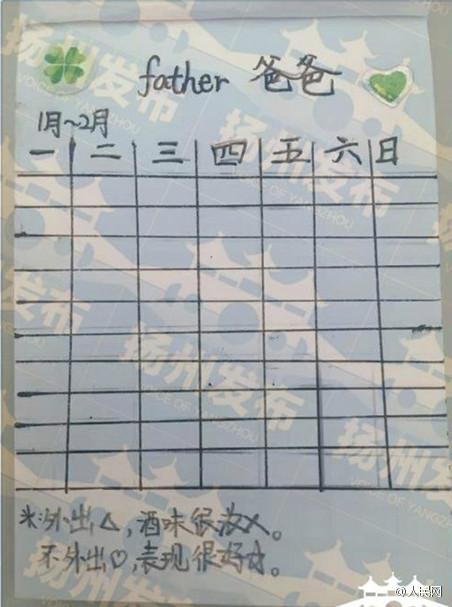 father 爸爸
1月~2月
一 二 三 四 五 六 日
※:外出△,酒味很浓人。
不外出♡,表现很好☆。
扬州发布
VOICE OF YANGZHOU
@人民网